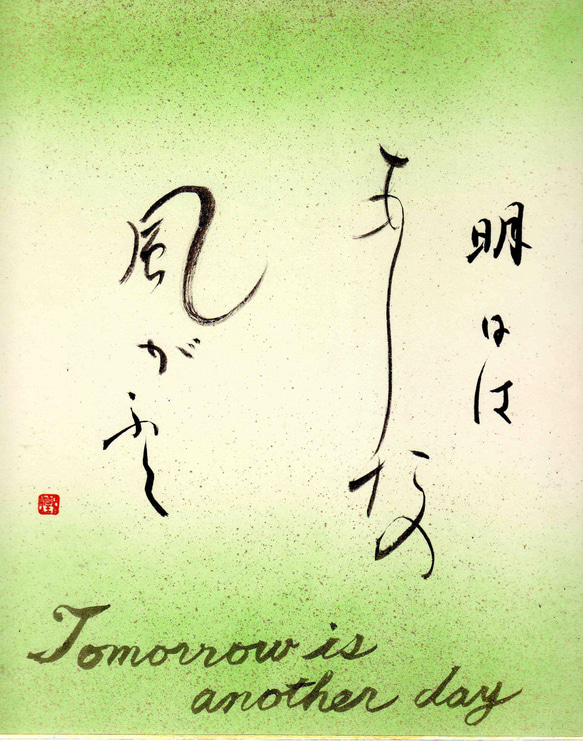 明日は
あしたの
風がふく
Tomorrow is
another day